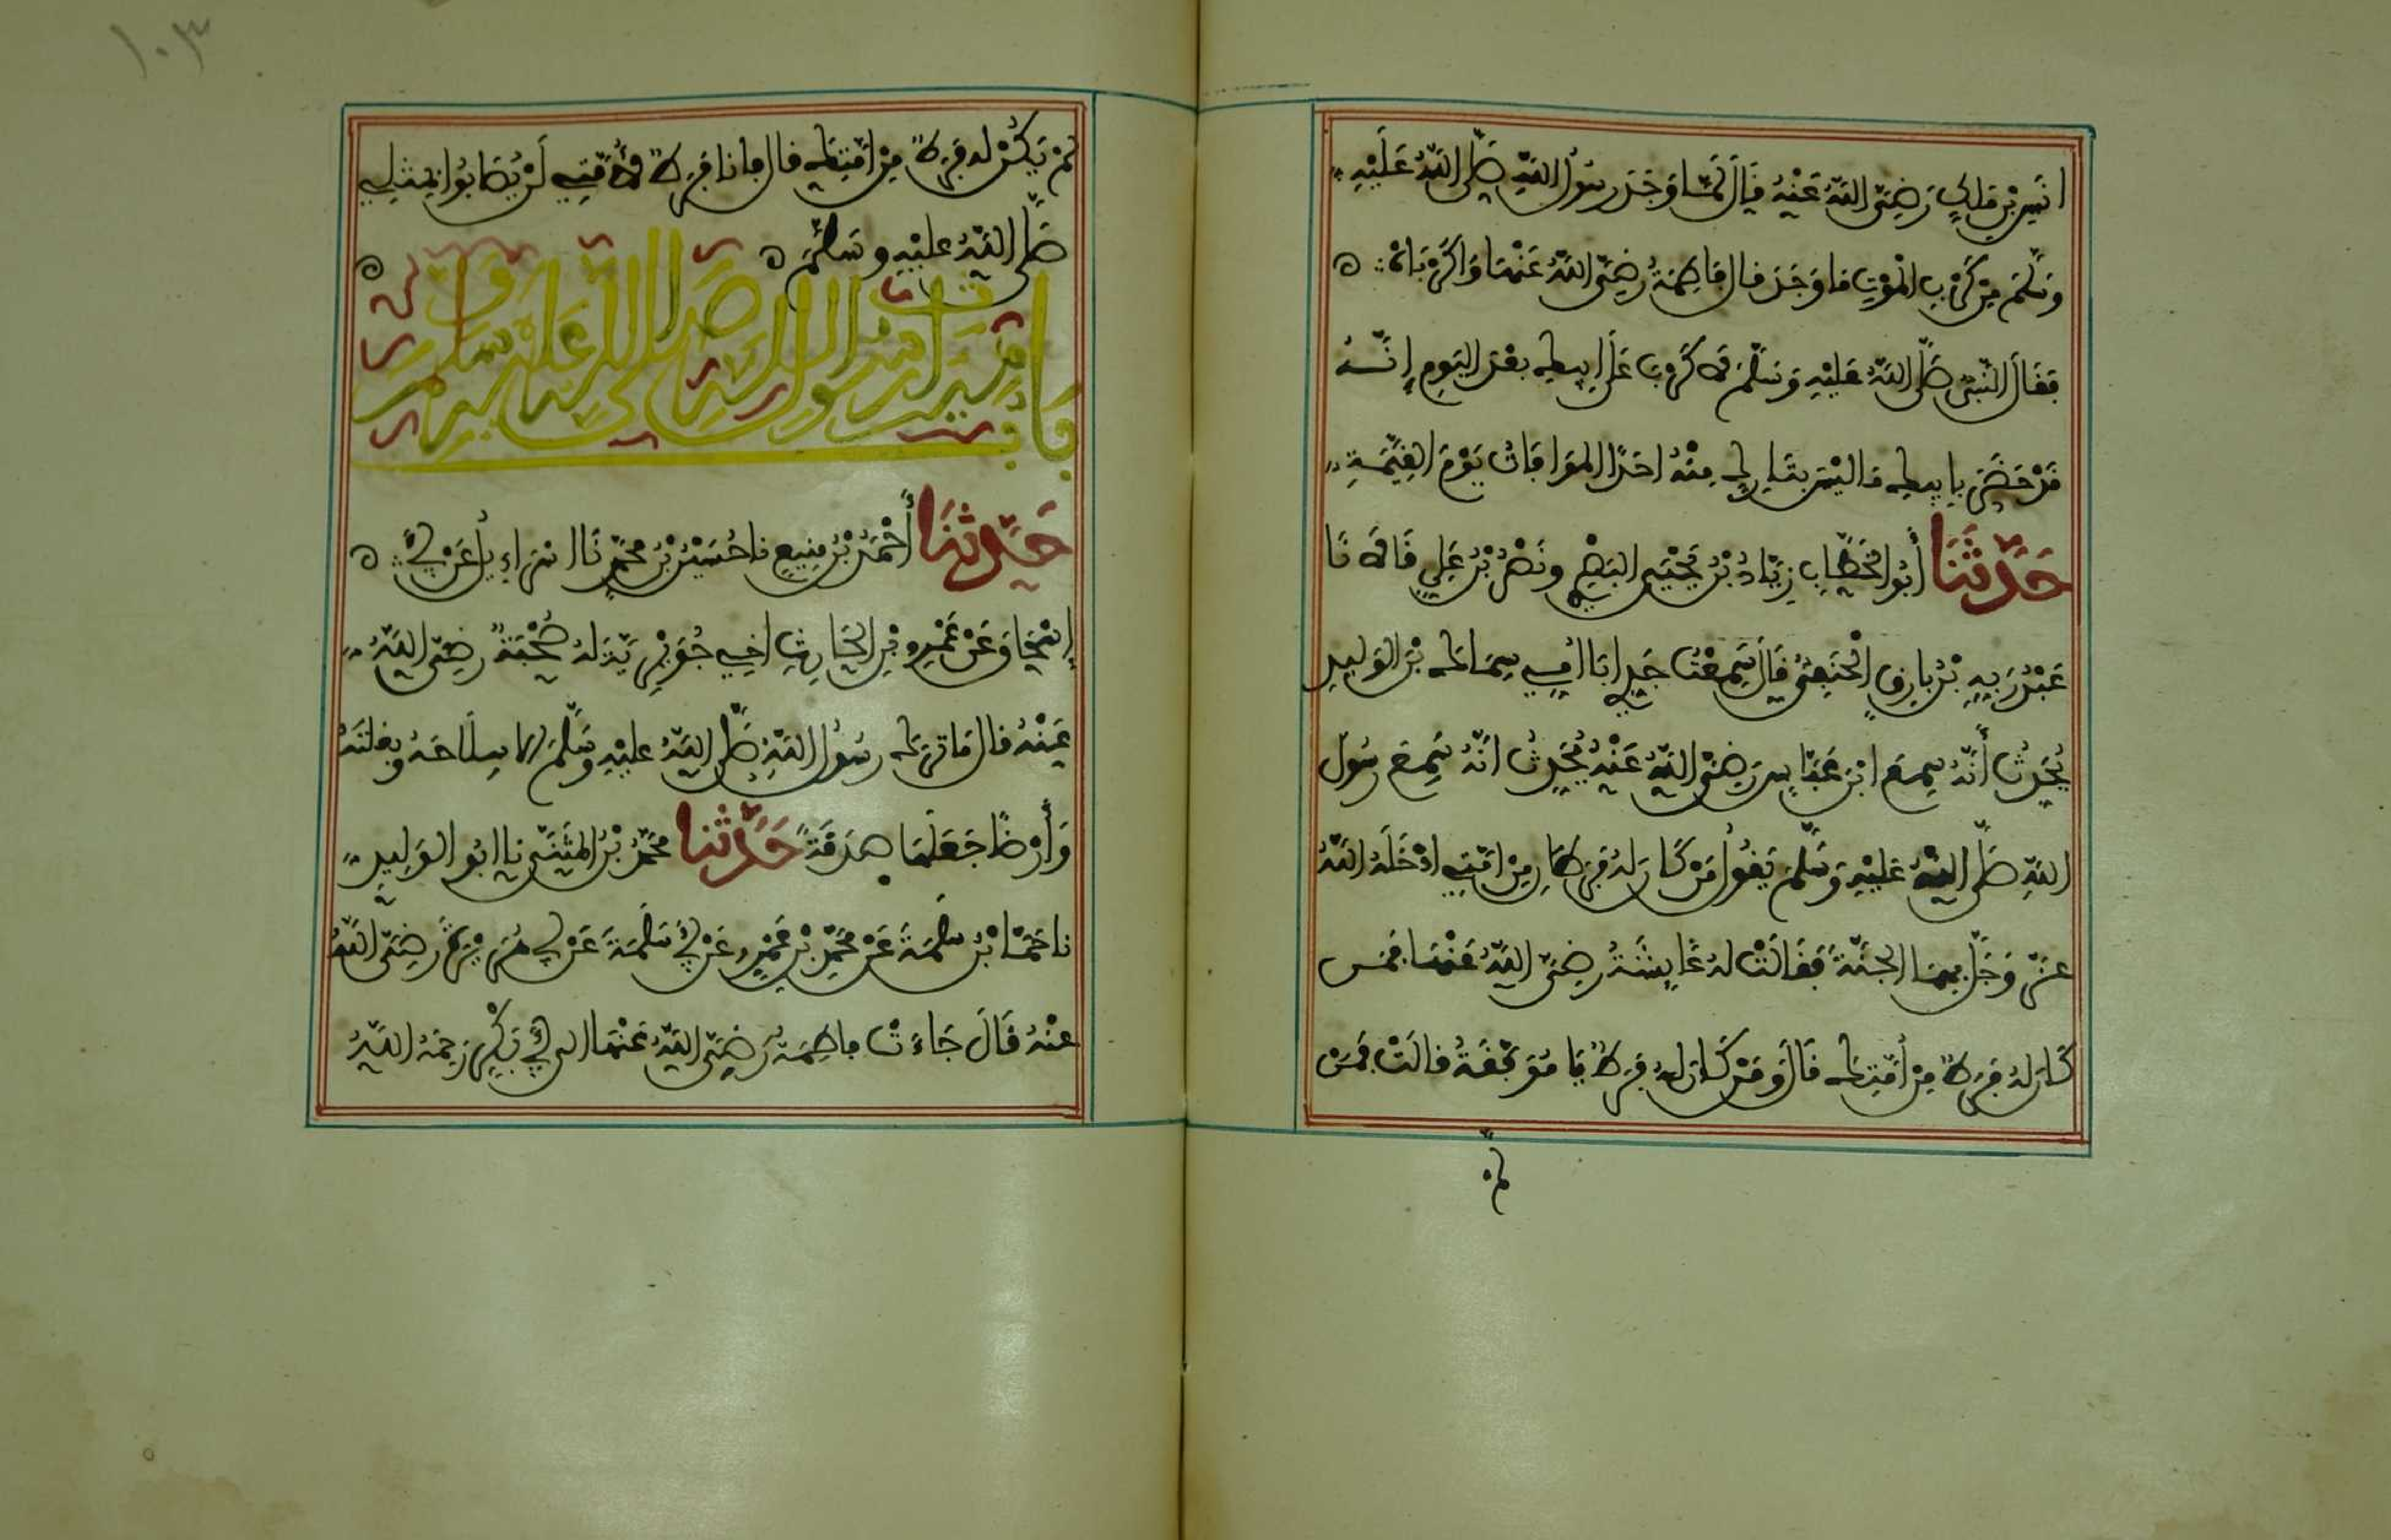 انس بن مالك رَضِيَ اللهُ عَنْهُ قَالَ لَمَّا وَجَدَ رسُولُ اللهِ صَلَّى اللهُ عَلَيْهِ
وسَلَّمَ مِنْ كَرْبِ الْمَوْتِ ما وَجَدَ قال فاطِمَةُ رضِيَ اللهُ عَنْهَا وَاكَرْبَاهْ
فقَالَ النَّبِيُّ صَلَّى اللهُ عَلَيْهِ وَسَلَّمَ لا كَرْبَ عَلَى ابيكِ بعْدَ اليَوم إِنَّهُ
قَدْ حَضَرَ بابيكِ مَا ليْسَ بتَارِكٍ مِنْهُ احَدًا المُوَافَاتُ يَوْمَ القِيَمَةِ
حَدَّثَنَا أَبُو الخَطَّابِ زِيَادُ بْنُ يَحْيَى البَصْرِي ونَصْرُ بْنُ عَلِي قَالَا نَا
عَبْدُ رَبِهِ بْنُ بارِقٍ الْحَنَفِيُّ قَالَ سَمِعْتُ جَدِي ابَا امِي سِمَاكَ بْنَ الوَلِيدِ
يُحَدِثُ أَنَّهُ سِمعَ ابْنَ عَبَّاسٍ رَضِيَ اللهُ عَنْهُ يُحَدِثُ انَّهُ سَمِعَ رسُولَ
اللهِ صَلَّى اللهُ عَلَيْهِ وَسَلَّمَ يَقُولُ مَنْ كَانَ لهُ فَرَطَانِ مِنْ امَّتِي ادْخَلَهُ اللهُ
عزّ وَجَلَّ بهِمَا الجَنَّةَ فَقَالَتْ لهُ عَايِشَةُ رضِيَ اللهُ عَنْهَا فمَن
كَانَ لهُ فَرَطٌ مِنْ أمَّتِكَ قَالَ وَمَنْ كَانَ لهُ فَرَطٌ يَا مُوَفَّقَةُ قالَتْ فمَنْ
لم
١٠٣
لمْ يَكُنْ له فَرَطٌ مِنْ امَّتِكَ قال فانا فَرَطٌ لأُمَّتِي لَنْ يُصَابُوا بمِثلِي
صَلَّى اللهُ عليْهِ وسَلَّمَ
بَابُ مِيرَاث رسُول الله صَلَّى الله عَلَيْه وسلم
حَدَّثَنَا أَحْمَدُ بْنُ مَنِيعٍ نا حُسَيْنُ بْنُ محَمَّدٍ نَا اسْرَاءِيلُ عَنْ أَبِي
إسْحَاقَ عَنْ عَمْرِو بْنِ الحَارِثِ اخِي جُوَيْرِيَةَ لهُ صُحْبَةٌ رضِيَ اللهُ
عَنْهُ قال مَا تَركَ رسُولُ اللهِ صَلَّى اللهُ عليْهِ وسَلَّمَ الا سِلَاحَهُ وبغلتَهُ
وَأرْضًا جَعَلَهَا صدَقَةً حَدَّثَنا محَمَّدُ بْنُ المثَنَّى نا ابُو الوَلِيدِ
نا حَمَّادُ بْنُ سَلَمَةَ عَنْ محَمَّدِ بْنِ عَمْرٍو عَنْ أَبِي سَلَمَةَ عَنْ أَبِي هُرَيْرَةَ رضِيَ اللهُ
عنْهُ قَالَ جَاءَتْ فاطِمَةُ رَضِيَ اللهُ عَنْهَا الى أَبِي بَكْرٍ رَحِمَهُ اللهُ